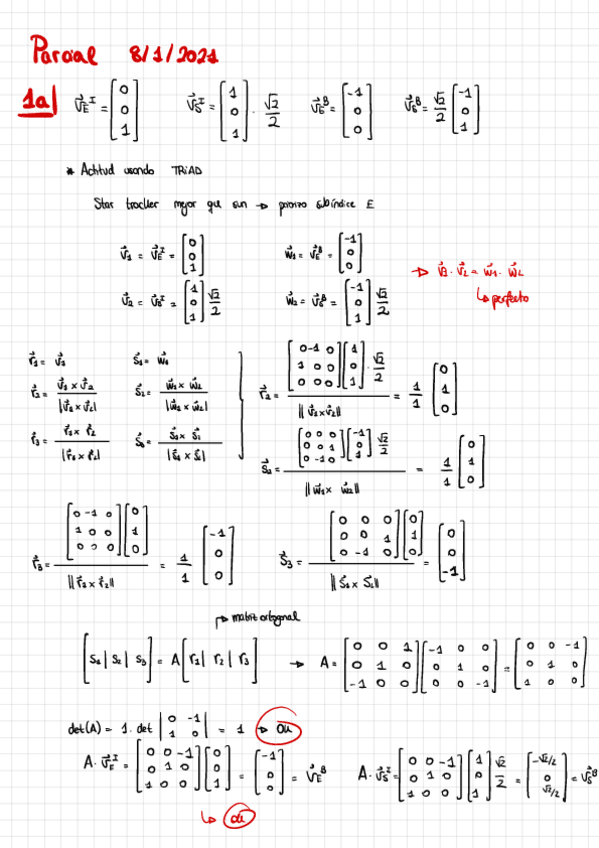 Parcial 8/1/2021
1a| v⃗_E^I = [0; 0; 1]   v⃗_S^I = [1; 0; 1] · √2/2   v⃗_E^B = [-1; 0; 0]   v⃗_S^B = √2/2 [-1; 0; 1]
* Actitud usando TRIAD
Star trocller mejor que sun → priorizo subíndice E
v⃗1 = v⃗_E^I = [0; 0; 1]   w⃗1 = v⃗_E^B = [-1; 0; 0]
v⃗2 = v⃗_S^I = [1; 0; 1] √2/2   w⃗2 = v⃗_S^B = [-1; 0; 1] √2/2   → v⃗1 · v⃗2 = w⃗1 · w⃗2
↳ perfecto
r⃗1 = v⃗1   s⃗1 = w⃗1
r⃗2 = v⃗1 x v⃗2 / |v⃗1 x v⃗2|   s⃗2 = w⃗1 x w⃗2 / |w⃗1 x w⃗2|   r⃗2 = [0 -1 0; 1 0 0; 0 0 0] [1; 0; 1] · √2/2 / ‖v⃗1 x v⃗2‖ = 1/1 [0; 1; 0]
r⃗3 = r⃗1 x r⃗2 / |r⃗1 x r⃗2|   s⃗3 = s⃗1 x s⃗2 / |s⃗1 x s⃗2|   s⃗2 = [0 0 0; 0 0 1; 0 -1 0] [-1; 0; 1] √2/2 / ‖w⃗1 x w⃗2‖ = 1/1 [0; 1; 0]
r⃗3 = [0 -1 0; 1 0 0; 0 0 0] [0; 1; 0] / ‖r⃗1 x r⃗2‖ = 1/1 [-1; 0; 0]   s⃗3 = [0 0 0; 0 0 1; 0 -1 0] [0; 1; 0] / ‖s⃗1 x s⃗2‖ = [0; 0; -1]
↱ matriz ortogonal
[s1| s2| s3] = A [r1| r2| r3]   → A = [0 0 1; 0 1 0; -1 0 0] [-1 0 0; 0 1 0; 0 0 -1] = [0 0 -1; 0 1 0; 1 0 0]
det(A) = 1 · det |0 -1; 1 0| = 1 → Ok
A · v⃗_E^I = [0 0 -1; 0 1 0; 1 0 0] [0; 0; 1] = [-1; 0; 0] = v⃗_E^B   A · v⃗_S^I = [0 0 -1; 0 1 0; 1 0 0] [1; 0; 1] √2/2 = [-√2/2; 0; √2/2] = v⃗_S^B
↳ ok